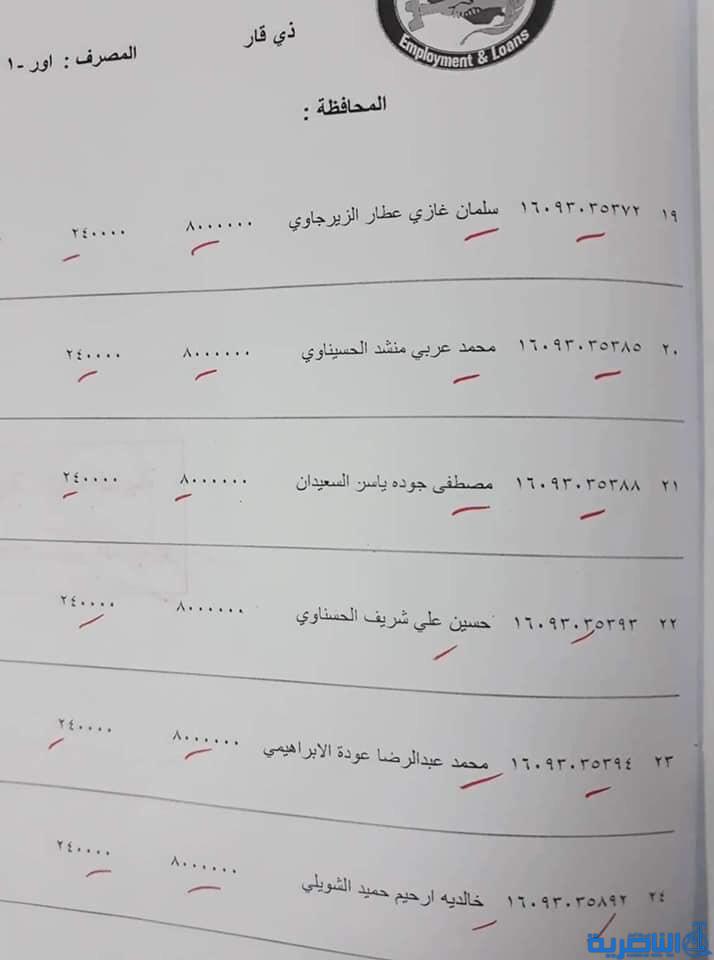 Employment & Loans
ذي قار
المصرف : اور -١
المحافظة :
١٩ ١٦٠٩٣٠٣٥٣٧٢ سلمان غازي عطار الزيرجاوي ٨٠٠٠٠٠٠ ٢٤٠٠٠٠
٢٠ ١٦٠٩٣٠٣٥٣٨٥ محمد عربي منشد الحسيناوي ٨٠٠٠٠٠٠ ٢٤٠٠٠٠
٢١ ١٦٠٩٣٠٣٥٣٨٨ مصطفى جوده ياسر السعيدان ٨٠٠٠٠٠٠ ٢٤٠٠٠٠
٢٢ ١٦٠٩٣٠٣٥٣٩٣ حسين علي شريف الحسناوي ٨٠٠٠٠٠٠ ٢٤٠٠٠٠
٢٣ ١٦٠٩٣٠٣٥٣٩٤ محمد عبدالرضا عودة الابراهيمي ٨٠٠٠٠٠٠ ٢٤٠٠٠٠
٢٤ ١٦٠٩٣٠٣٥٨٩٢ خالديه ارحيم حميد الشويلي ٨٠٠٠٠٠٠ ٢٤٠٠٠٠
الناصرية